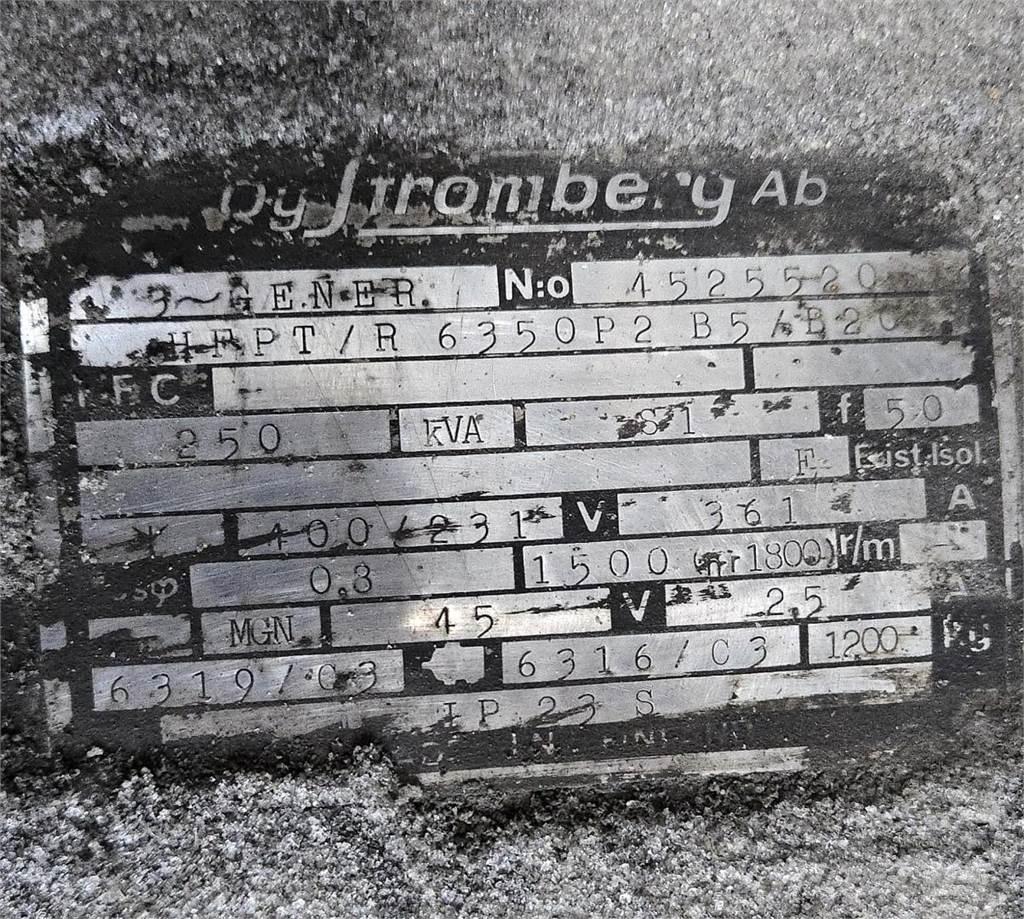 Oy Strömberg Ab
3~GENER. N:o 4525520
HFPT/R 6350P2 B5/B20
I.E.C
250 kVA S1 f 50
F Eust.Isol.
400/231 V 361 A
cosφ 0,8 1500 (nr1800) r/m
MGN 45 V 2,5 A
6319/C3 6316/C3 1200 kg
IP 23 S